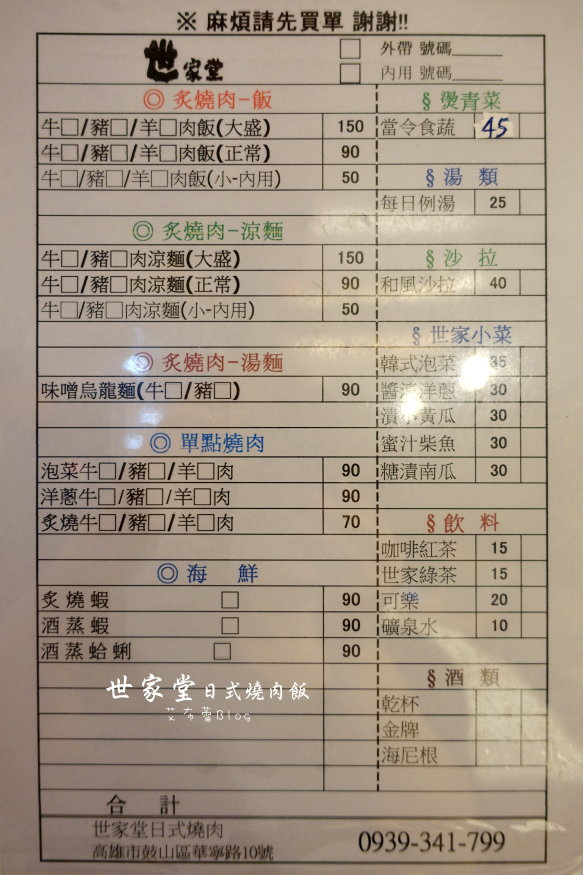 ※ 麻煩請先買單 謝謝!!
世家堂
□ 外帶 號碼____
□ 內用 號碼____
◎ 炙燒肉-飯
牛□/豬□/羊□肉飯(大盛) 150
牛□/豬□/羊□肉飯(正常) 90
牛□/豬□/羊□肉飯(小-內用) 50
◎ 炙燒肉-涼麵
牛□/豬□肉涼麵(大盛) 150
牛□/豬□肉涼麵(正常) 90
牛□/豬□肉涼麵(小-內用) 50
◎ 炙燒肉-湯麵
味噌烏龍麵(牛□/豬□) 90
◎ 單點燒肉
泡菜牛□/豬□/羊□肉 90
洋蔥牛□/豬□/羊□肉 90
炙燒牛□/豬□/羊□肉 70
◎ 海 鮮
炙燒蝦 □ 90
酒蒸蝦 □ 90
酒蒸蛤蜊 □ 90
§ 燙青菜
當令食蔬 45
§ 湯 類
每日例湯 25
§ 沙 拉
和風沙拉 40
§ 世家小菜
韓式泡菜 35
醬漬洋蔥 30
漬小黃瓜 30
蜜汁柴魚 30
糖漬南瓜 30
§ 飲 料
咖啡紅茶 15
世家綠茶 15
可樂 20
礦泉水 10
§ 酒 類
乾杯
金牌
海尼根
世家堂日式燒肉飯
艾布蕾Blog
合 計
世家堂日式燒肉
高雄市鼓山區華寧路10號
0939-341-799